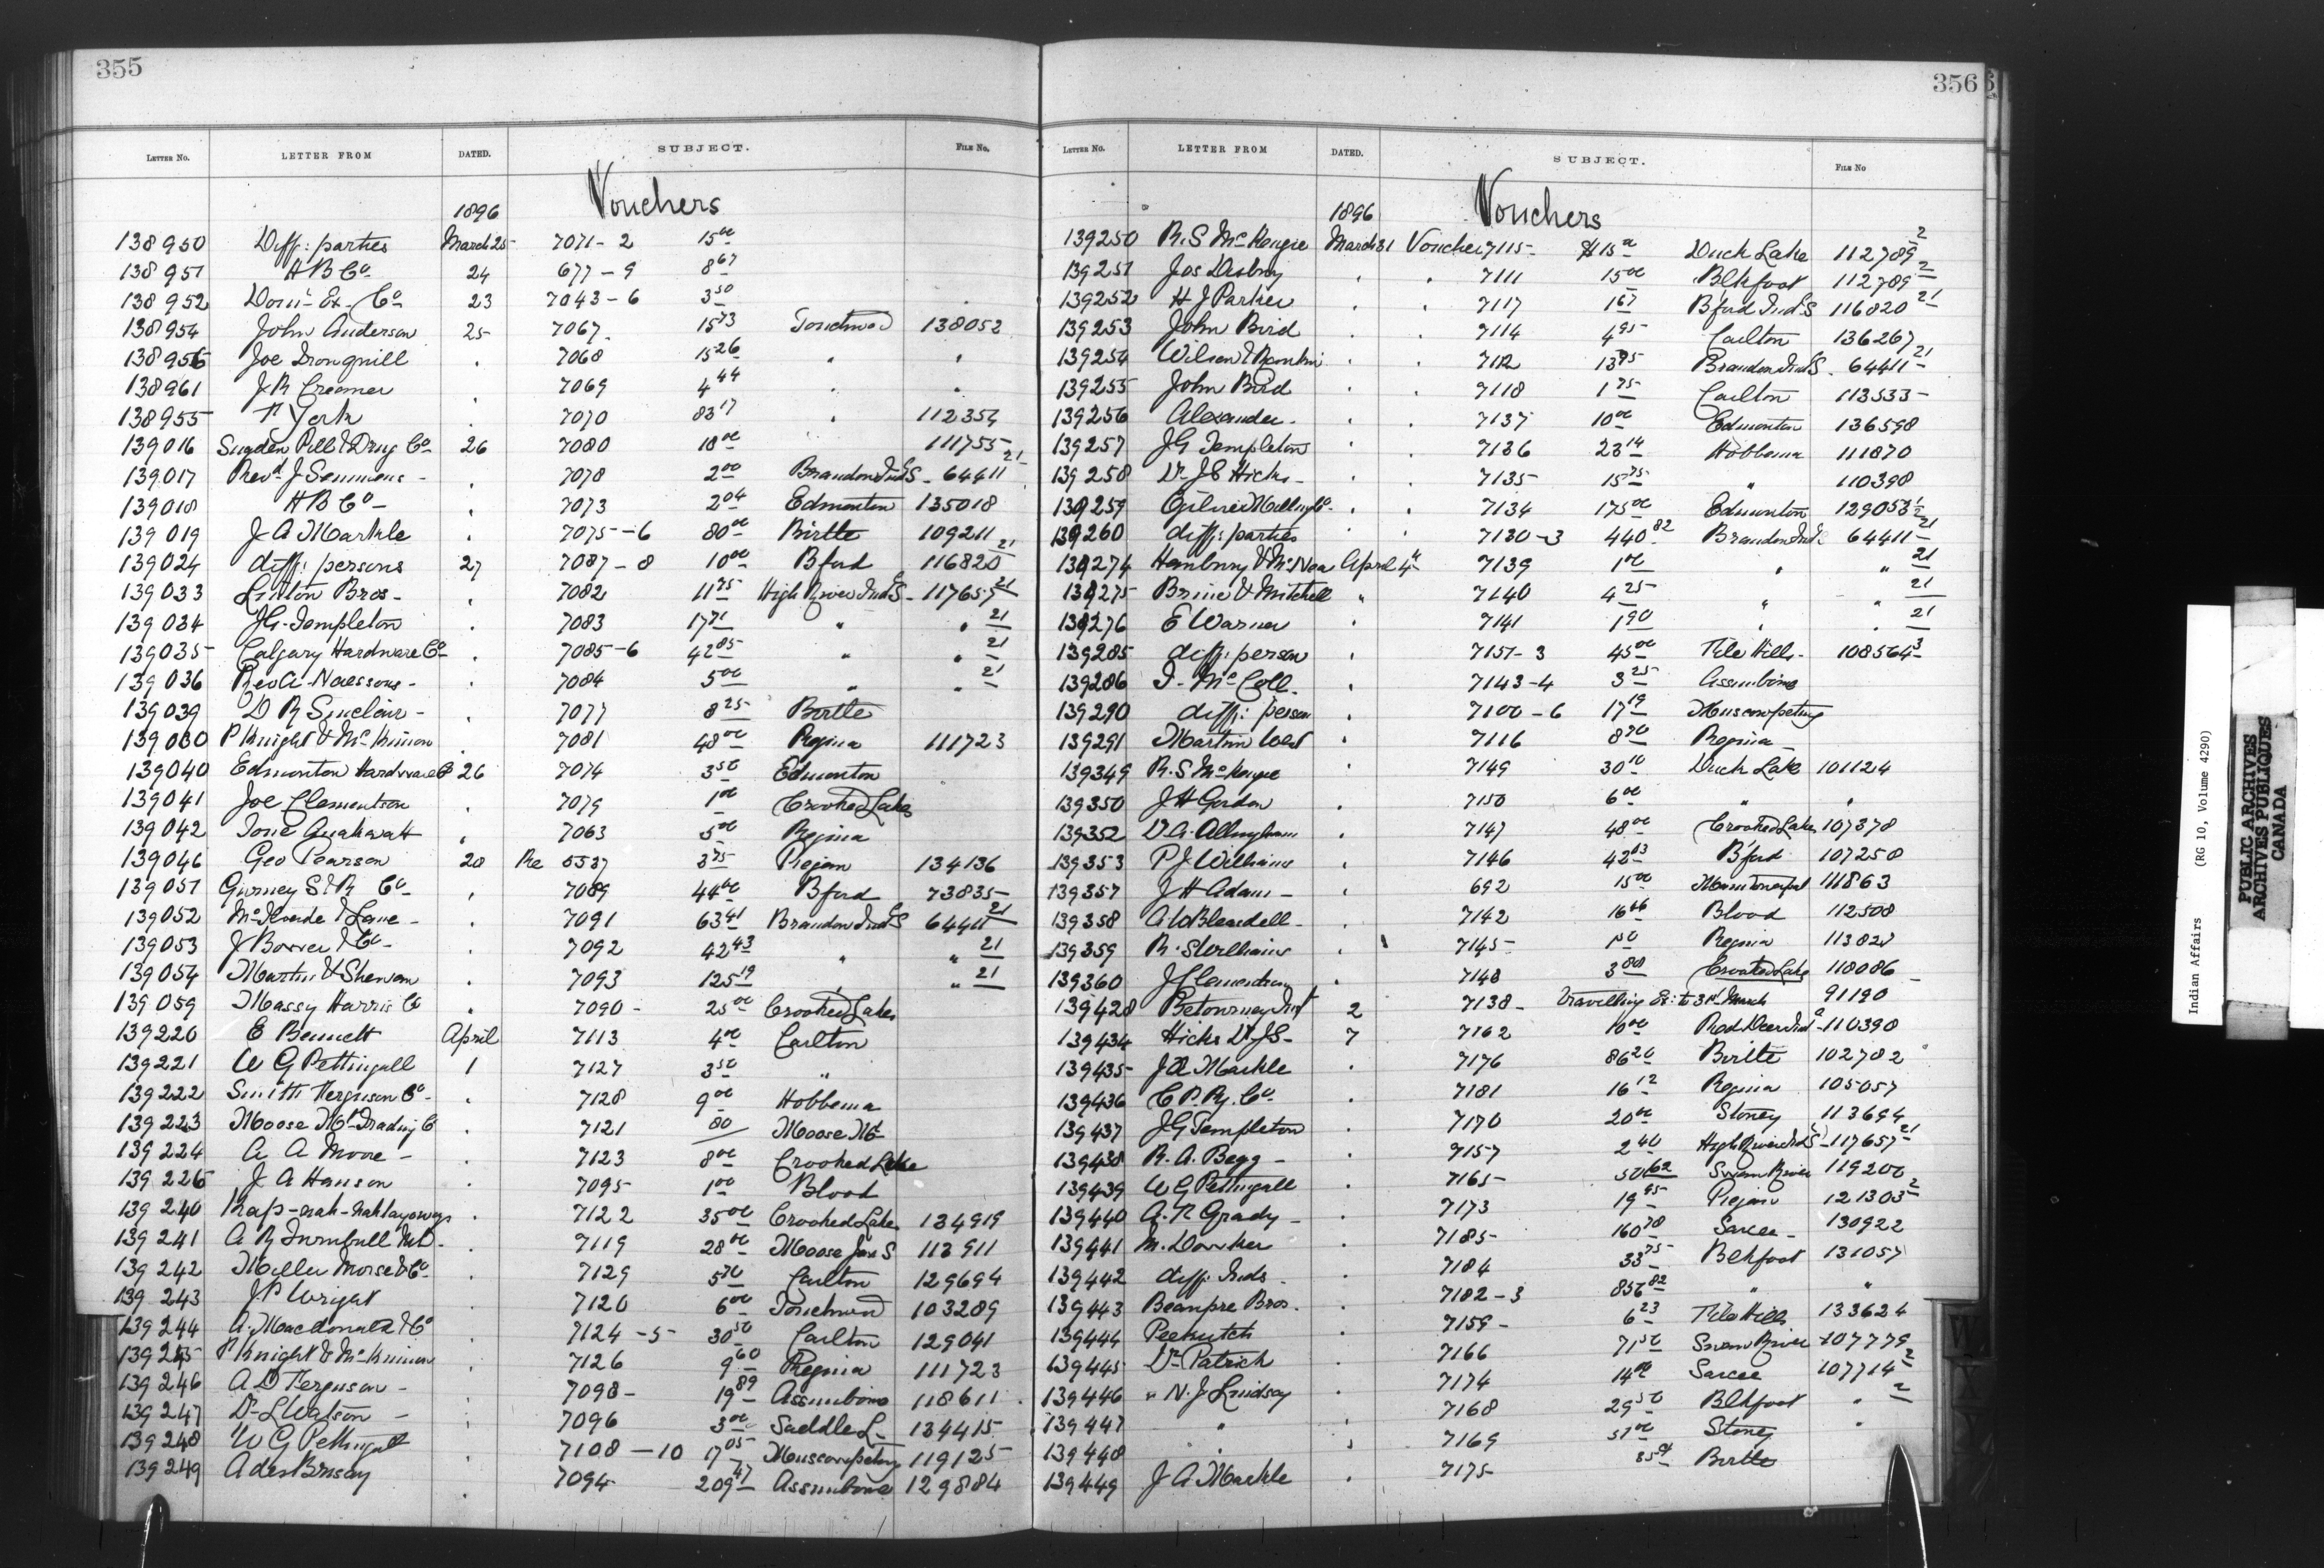 355
LETTER NO. LETTER FROM DATED. SUBJECT. FILE NO.
Vouchers
1896
138950 Diff: parties March 25 7071-2 15 00
138951 H B Co 24 677-9 8 67
138952 Dom: Ex. Co 23 7043-6 3 50
138954 John Anderson 25 7067 15 73 Touchwood 138052
138956 Joe Ironquill . 7068 15 26 " "
138961 J R Creamer . 7069 4 44 . .
138955 York . 7070 83 17 . 112354
139016 Sugden Pill & Drug Co 26 7080 18 00 111755
139017 Revd J Semmens . 7078 2 00 Brandon Ind S 64411 21
139018 H B Co . 7073 2 04 Edmonton 135018
139019 J A Markle . 7075-6 80 00 Birtle 109211
139024 diff: persons 27 7087-8 10 00 Bford 116820 21
139033 Linton Bros . 7082 11 75 High River Ind S 117657 21
139034 J.G. Templeton . 7083 17 71 " " 21
139035 Calgary Hardware Co . 7085-6 42 85 " " 21
139036 Rev A. Naessens . 7084 5 00 " " 21
139039 D R Sinclair . 7077 8 25 Birtle
139030 P Knight & McKinnon . 7081 48 00 Regina 111723
139040 Edmonton Hardware Co 26 7074 3 50 Edmonton
139041 Joe Clementson . 7079 1 00 Crooked Lakes
139042 . 7063 5 00 Regina
139046 Geo Pearson 20 Re 5537 3 75 Piegan 134136
139051 Gurney S & R Co . 7089 44 00 Bford 73835
139052 & Lane . 7091 63 41 Brandon Ind S 64411 21
139053 J Bower & Co . 7092 42 43 " " 21
139054 Martin & . 7093 125 19 " " 21
139059 Massy Harris Co . 7090 25 00 Crooked Lakes
139220 E Bennett April 7113 4 00 Carlton
139221 W G Pettingell 1 7127 3 50 "
139222 Smith Ferguson Co . 7128 9 00 Hobbema
139223 Moose Mt Trading C . 7121 80 Moose Mt
139224 A A Moore . 7123 8 00 Crooked Lake
139226 J A Hanson . 7095 1 00 Blood
139240 . 7122 35 00 Crooked Lake 134919
139241 A R Turnbull MD . 7119 28 00 Moose Jaw S 113911
139242 Miller Morse & Co . 7129 5 70 Carlton 129694
139243 J P Wright 7120 6 00 Touchwood 103289
139244 A. Macdonald & Co . 7124-5 30 50 Carlton 129041
139245 P Knight & McKinnon . 7126 9 60 Regina 111723
139246 A D Ferguson . 7098 19 89 Assiniboine 118611
139247 Dr L Watson . 7096 3 00 Saddle L 134415
139248 W G Pettingell . 7108-10 17 05 Muscowpetung 119125
139249 A des Brisay . 7094 209 47 Assiniboine 129884
356
LETTER NO. LETTER FROM DATED. SUBJECT. FILE NO
Vouchers
1896
139250 R.S McKenzie March 31 Voucher 7115 $15 00 Duck Lake 112789 2
139251 Jos . . 7111 15 00 Blkfoot 112789 2
139252 H J Parker . . 7117 1 67 Bford Ind S 116820 21
139253 John Bird . . 7114 4 95 Carlton 136267
139254 Wilson & Rankin . . 7112 13 95 Brandon Ind S 64411 21
139255 John Bird . . 7118 1 75 Carlton 113533
139256 Alexander . . 7137 10 00 Edmonton 136598
139257 J G Templeton . . 7136 23 14 Hobbema 111870
139258 Dr J S Hicks . . 7135 15 75 " 110398
139259 Ogilvie Milling Co . . 7134 175 00 Edmonton 129053
139260 diff: parties . . 7130-3 440 82 Brandon Ind S 64411 21
139274 Hanbury & McNea April 4 7139 1 00 " " 21
139275 Brine & Mitchell " 7140 4 25 " " 21
139276 E Warner . 7141 1 90 " " 21
139285 diff: person . 7151-3 45 00 File Hills 108564 3
139286 McColl . 7143-4 3 25 Assiniboine
139290 diff: person . 7100-6 17 19 Muscowpetung
139291 Martin West . 7116 8 70 Regina
139349 R.S McKenzie 7149 30 10 Duck Lake 101124
139350 J H Gordon . 7150 6 00 " "
139352 Allingham . 7147 48 00 Crooked Lakes 107378
139353 P J Williams . 7146 42 03 Bford 107250
139357 J H Adam . 692 15 00 111863
139358 . 7142 16 66 Blood 112508
139359 R. S Williams . 7145 1 50 Regina 113823
139360 J Clementson . 7148 3 80 Crooked Lake 118086
139428 Betourney 2 7138 Travelling Ex: to 31st March 91190
139434 Hicks Dr J S 7 7162 10 00 Red Deer Ind 110390
139435 J A Markle . 7176 86 20 Birtle 102782
139436 C P. Ry. Co . 7181 16 12 Regina 105057
139437 J G Templeton . 7170 20 00 Stoney 113694
139438 R. A. Begg . 7157 2 40 High River Ind S 117657 21
139439 W G Pettingell . 7165 50 62 Swan River 119200
139440 Grady . 7173 19 95 Piegan 121303 2
139441 M. . 7185 160 78 Sarcee 130922
139442 diff: Inds . 7184 33 75 Blkfoot 131057
139443 Beaupre Bros. . 7182-3 856 82 " "
139444 Peekutch . 7159 6 23 File Hills 133624
139445 Dr Patrick . 7166 71 50 Swan River 107779
139446 " N. J Lindsay . 7174 14 00 Sarcee 107714 2
139447 " . 7168 29 50 Blkfoot " 2
139448 " . 7169 51 00 Stoney "
139449 J A Markle . 7175 85 Birtle
Indian Affairs (RG 10, Volume 4290)
PUBLIC ARCHIVES
ARCHIVES PUBLIQUES
CANADA